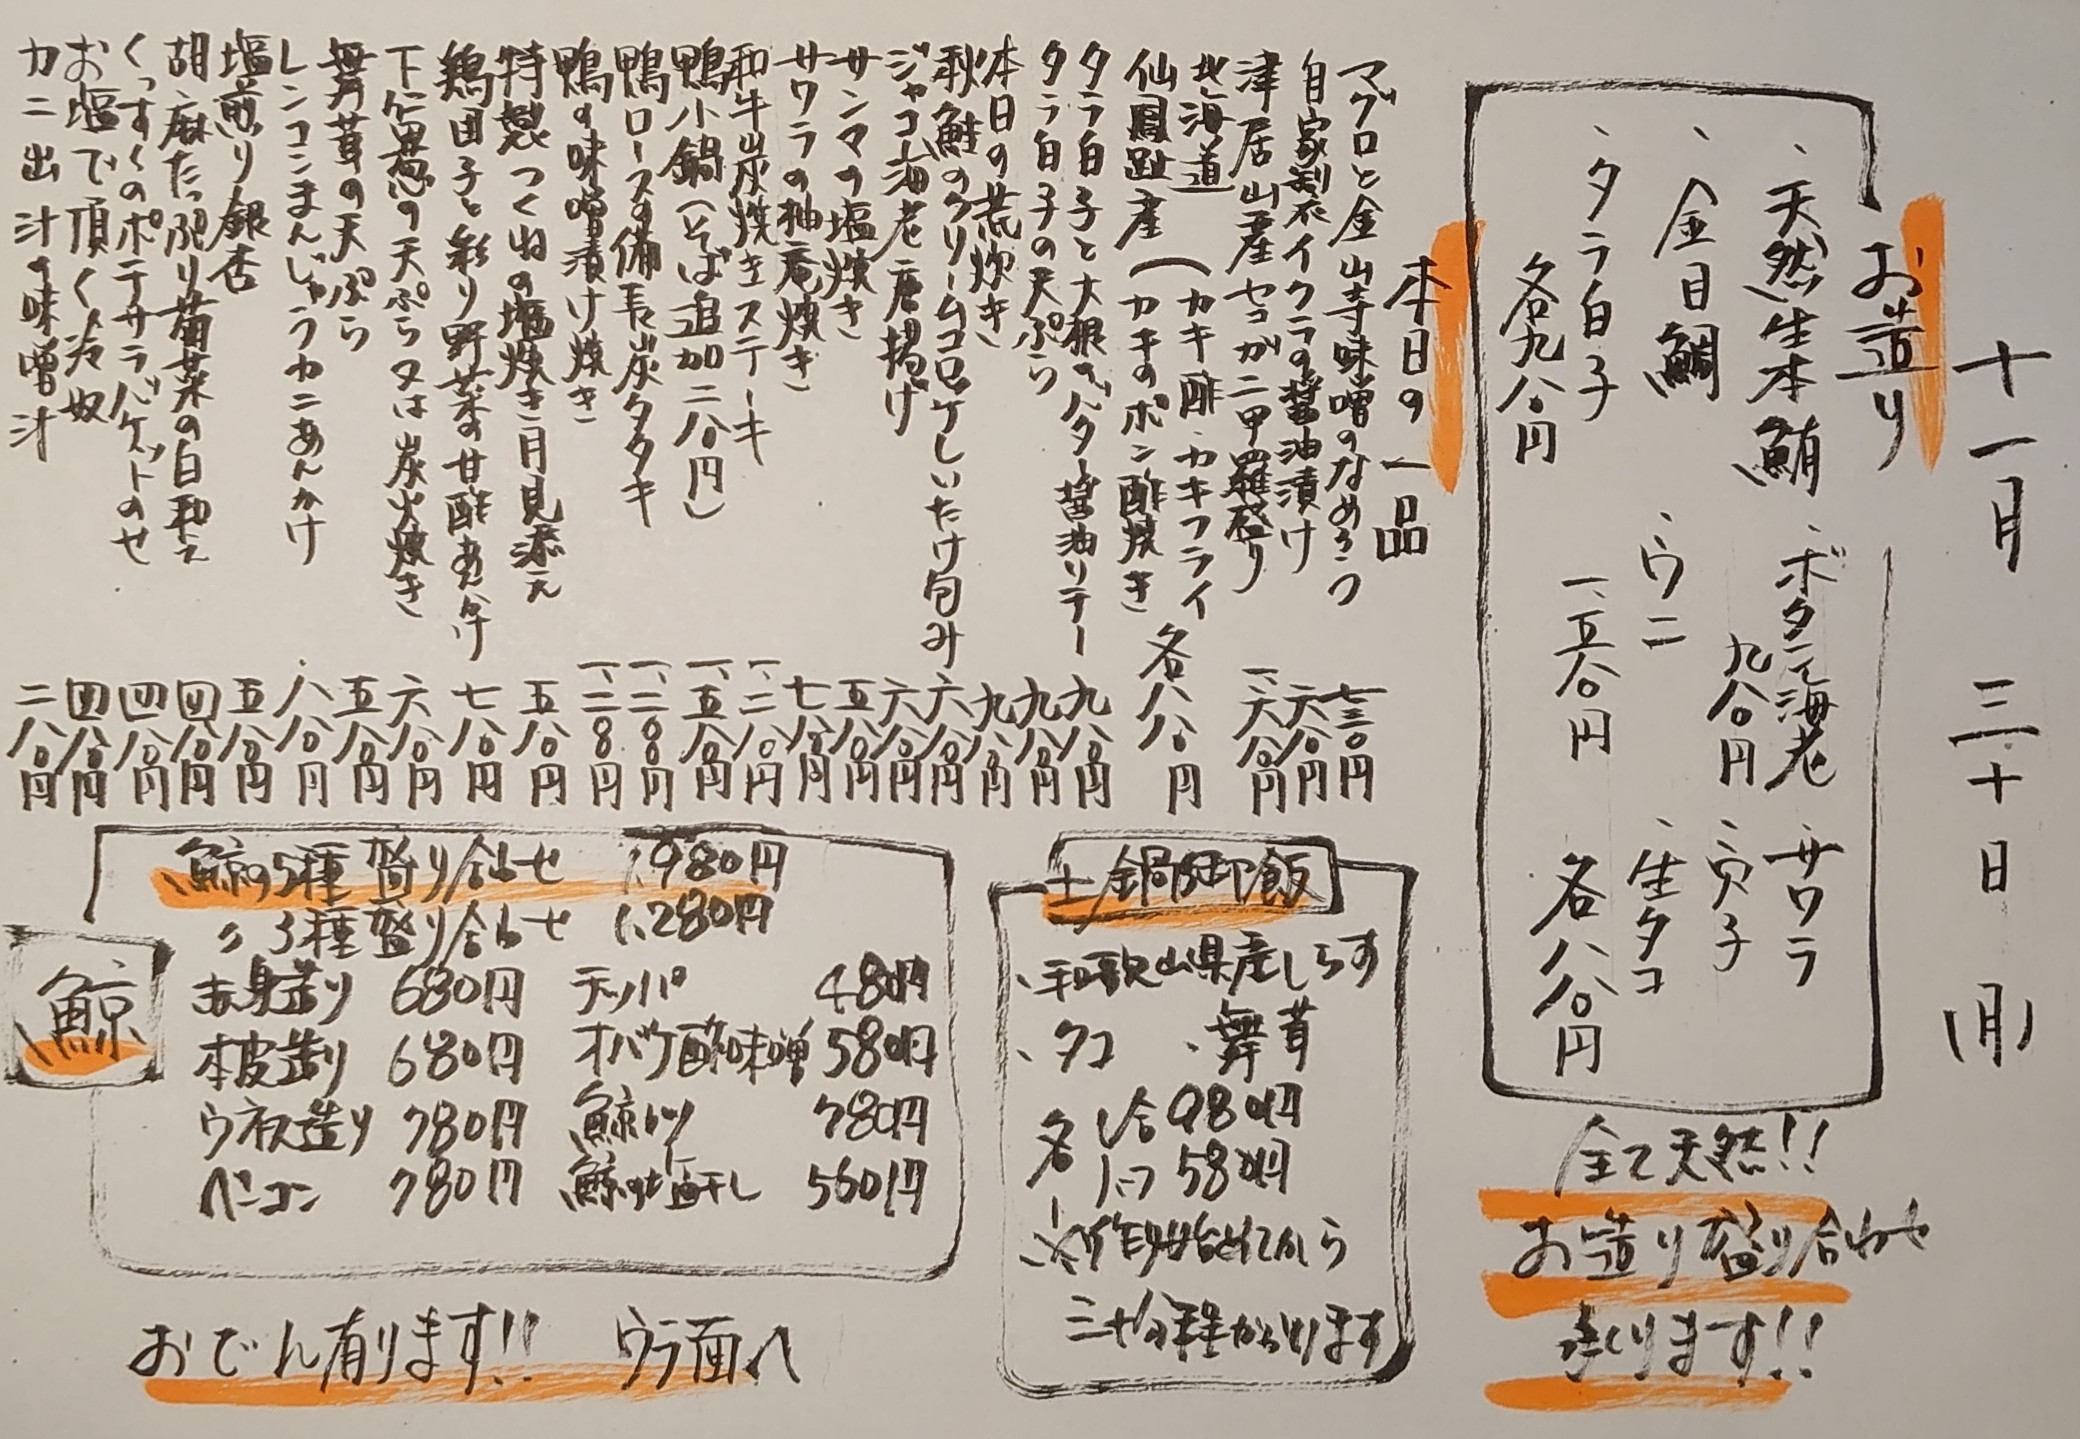 十一月 三十日 (月)
お造り
、天然生本鮪 、ボタン海老 九八〇円 、サワラ
、金目鯛 、ウニ 一、五八〇円 、真子 、生タコ
、タラ白子 各九八〇円 各八八〇円
全て天然!!
お造り盛り合わせ
承ります!!
本日の一品
マグロと金山寺味噌のなめろう 七三〇円
自家製イクラの醤油漬け 六八〇円
津居山産セコガニ甲羅盛り 一、六八〇円
北海道
仙鳳趾産(カキ酢・カキフライ
カキのポン酢焼き 各八八〇円
タラ白子と大根のバター醤油ソテー 九八〇円
タラ白子の天ぷら 九八〇円
本日の荒炊き 九八〇円
秋鮭のクリームコロッケしいたけ旬み 六八〇円
ジャコ海老唐揚げ 六八〇円
サンマの塩焼き 五八〇円
サワラの柚庵焼き 七八〇円
和牛炭焼きステーキ 一、二八〇円
鴨小鍋(そば追加二八〇円) 一、五八〇円
鴨ロースの備長炭タタキ 一、二〇〇円
鴨の味噌漬け焼き 一、二〇〇円
特製つくねの塩焼き月見添え 五八〇円
鶏団子と彩り野菜の甘酢あんかけ 七八〇円
下仁田葱の天ぷら又は炭火焼き 六八〇円
舞茸の天ぷら 五八〇円
レンコンまんじゅうカニあんかけ 八八〇円
塩煎り銀杏 五八〇円
胡麻たっぷり菊菜の白和え 四八〇円
くっすくのポテサラバケットのせ 四八〇円
お塩で頂く冷奴 四八〇円
カニ出汁の味噌汁 二八〇円
土鍋御飯
、和歌山県産しらす
、タコ 、舞茸
各 1合 980円
1/2 580円
※作り始めてから
三十分程かかります
鯨
鯨の5種盛り合わせ 1,980円
〃 3種盛り合わせ 1,280円
赤身造り 680円 テッパ 480円
本皮造り 680円 オバケ酢味噌 580円
ウネス造り 780円 鯨カツ 780円
ベーコン 780円 鯨の塩干し 560円
おでん有ります!! ウラ面へ